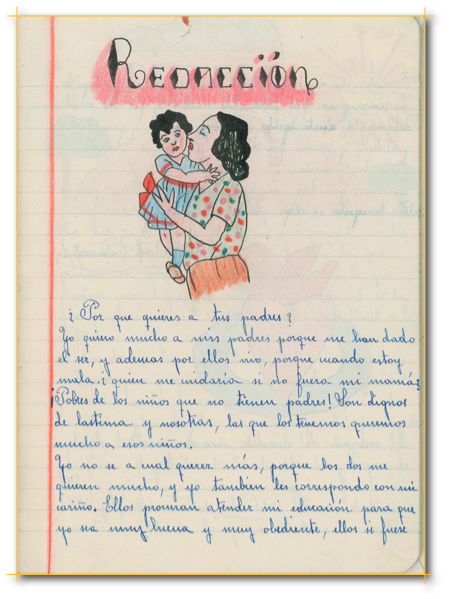 Redacción
¿Por que quieres a tus padres?
Yo quiero mucho a mis padres porque me han dado
el ser, y ademas por ellos vivo, porque cuando estoy
mala ¿quien me cuidaria si no fuera mi mamá?
¡Pobres de los niños que no tienen padres! Son dignos
de lastima y nosotras, las que los tenemos queremos
mucho a esos niños.
Yo no se a cual querer más, porque los dos me
quieren mucho, y yo tambien les correspondo con mi
cariño. Ellos procuran atender mi educación para que
yo sea muy buena y muy obediente, ellos si fuese